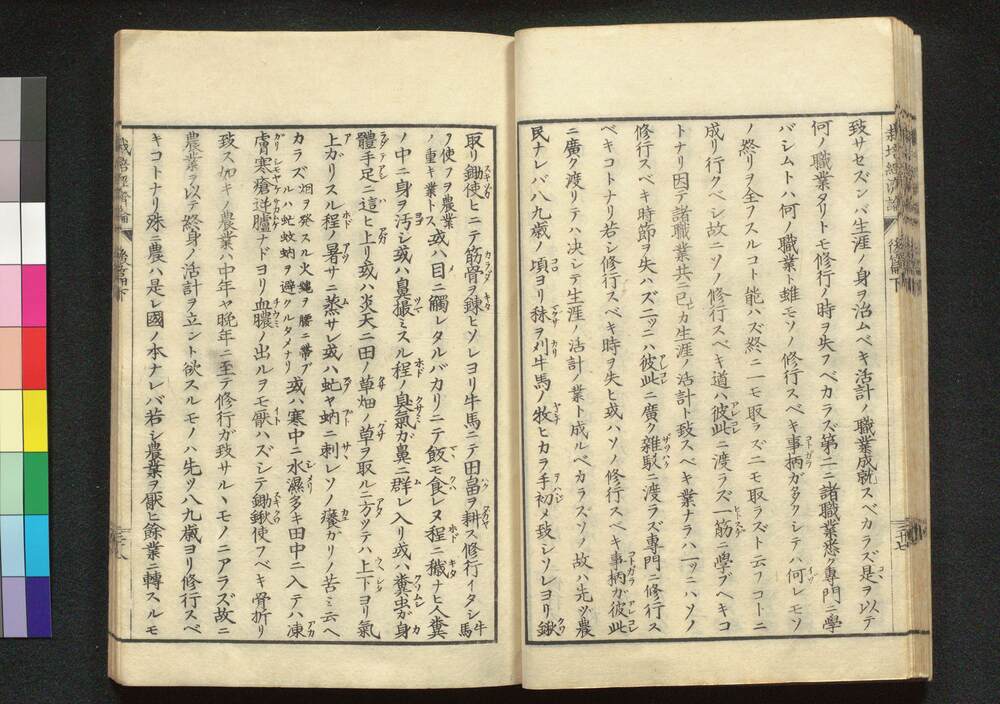 栽培經済論
後篇下
三十七
致サセズンバ生涯ノ身ヲ治ムベキ活計ノ職業成就スベカラズ是ヲ以テ
何ノ職業タリトモ修行ノ時ヲ失フベカラズ第二ニ諸職業悉ク專門ニ學
バシムトハ何ノ職業ト雖モソノ修行スベキ事柄ガ多クシテハ何レモソ
ノ終リヲ全フスルコト能ハズ終ニ一モ取ラズ二モ取ラズト云フコトニ
成リ行クベシ故ニソノ修行スベキ道ハ彼此ニ渡ラズ一筋ニ學ブベキコ
トナリ因テ諸職業共ニ已ガ生涯ノ活計ト致スベキ業ナラハ一ッニハソノ
修行スベキ時節ヲ失ハズ二ッニハ彼此ニ廣ク雜駁ニ渡ラズ專門ニ修行ス
ベキコトナリ若シ修行スベキ時ヲ失ヒ或ハソノ修行スベキ事柄ガ彼此
ニ廣ク渡リテハ决シテ生涯ノ活計ノ業ト成ルベカラズソノ故ハ先ヅ農
民ナレバ八九歳ノ頃ヨリ秣ヲ刈牛馬ノ牧ヒカラ手初メ致シソレヨリ鍬
取リ鋤使ヒニテ筋骨ヲ錬ヒソレヨリ牛馬ニテ田畠ヲ耕ス修行イタシ牛馬
ヲ使フヲ農業ノ重キ業トス或ハ目ニ觸レタルバカリニテ飯モ食レヌ程ニ穢ナヒ人糞
ノ中ニ身ヲ汚シ或ハ鼻撮ミスル程ノ臭氣ガ鼻ニ群レ入リ或ハ糞虫ガ身
體手足ニ這ヒ上リ或ハ炎天ニ田ノ草畑ノ草ヲ取ルニ方ツテハ上下ヨリ氣
上ガリスル程ノ暑サニ蒸サレ或ハ虻ヤ蚋ニ刺レソノ癢ガリノ苦ミ云ヘ
カラズ畑ヲ発スル火繩ヲ腰ニ帯ブルハ虻蚊蚋ヲ避クルタメナリ或ハ寒中ニ水濕多キ田中ニ入テハ凍
膚寒瘡逆臚ナドヨリ血膿ノ出ルヲモ厭ハズシテ鋤鍬使フベキ骨折リ
致ス如キノ農業ハ中年ヤ晩年ニ至テ修行ガ致サルヽモノニアラズ故ニ
農業ヲ以テ終身ノ活計ヲ立ント欲スルモノハ先ツ八九歳ヨリ修行スベ
キコトナリ殊ニ農ハ是レ國ノ本ナレバ若シ農業ヲ厭ヒ餘業ニ轉スルモ
栽培經濟論
後篇下
三十八